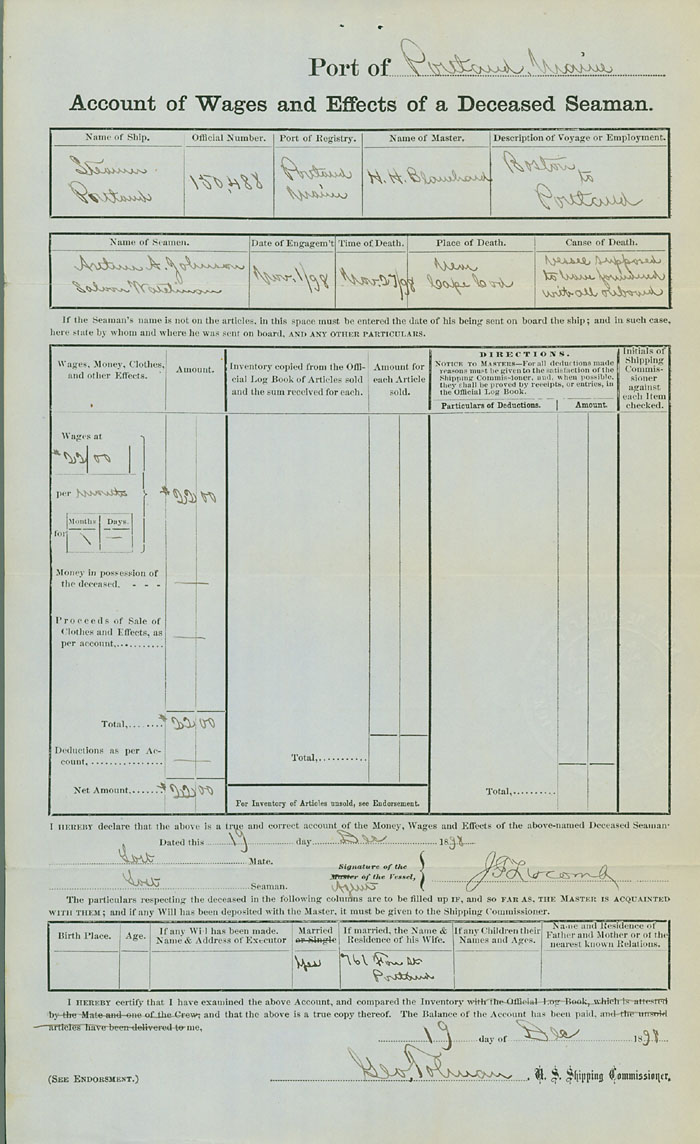 Port of Portland, Maine
Account of Wages and Effects of a Deceased Seaman.
Name of Ship. Official Number. Port of Registry. Name of Master. Description of Voyage or Employment.
Steamer Portland 150,488 Portland Maine H. H. Blanchard Boston to Portland
Name of Seamen. Date of Engagem't Time of Death. Place of Death. Cause of Death.
Arthur A. Johnson Nov. 1/98 Nov. 27/98 Near Cape Cod Vessel supposed to have foundered with all onboard
Saloon Watchman
If the Seaman's name is not on the articles, in this space must be entered the date of his being sent on board the ship; and in such case,
here state by whom and where he was sent on board, AND ANY OTHER PARTICULARS.
Wages, Money, Clothes, and other Effects.
Amount.
Inventory copied from the Official Log Book of Articles sold and the sum received for each.
Amount for each Article sold.
DIRECTIONS.
NOTICE TO MASTERS—For all deductions made
reasons must be given to the satisfaction of the
Shipping Commissioner, and, when possible,
they shall be proved by receipts, or entries, in
the Official Log Book.
Particulars of Deductions. Amount.
Initials of Shipping Commissioner against each Item checked.
Wages at
$22 00
per month $22 00
Months Days.
for 1 —
Money in possession of
the deceased. - - - —
Proceeds of Sale of
Clothes and Effects, as
per account,.......... —
Total,....... $22 00
Deductions as per Ac-
count,............... —
Net Amount,....... $22 00
Total,..........
For Inventory of Articles unsold, see Endorsement.
Total,..........
I HEREBY declare that the above is a true and correct account of the Money, Wages and Effects of the above-named Deceased Seaman-
Dated this 19 day Dec 1898
Lost Mate.
Lost Seaman.
Signature of the
Master of the Vessel,
Agent
J F Liscomb
The particulars respecting the deceased in the following columns are to be filled up IF, AND SO FAR AS, THE MASTER IS ACQUAINTED
WITH THEM; and if any Will has been deposited with the Master, it must be given to the Shipping Commissioner.
Birth Place. Age. If any Will has been made. Name & Address of Executor Married or Single If married, the Name & Residence of his Wife. If any Children their Names and Ages. Name and Residence of Father and Mother or of the nearest known Relations.
Yes 761 Fore St
Portland
I HEREBY certify that I have examined the above Account, and compared the Inventory with the Official Log Book, which is attested
by the Mate and one of the Crew; and that the above is a true copy thereof. The Balance of the Account has been paid, and the unsold
articles have been delivered to me,
19 day of Dec 1898
Geo. Tolman, U. S. Shipping Commissioner.
(SEE ENDORSMENT.)